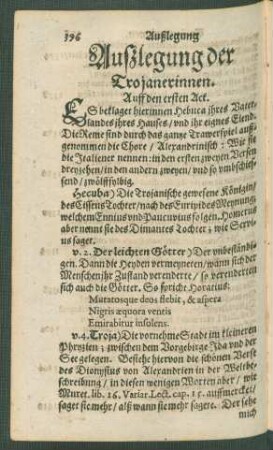 396 Außlegung
Außlegung der
Trojanerinnen.
Auff den ersten Act.
ES beklaget hierinnen Hebuca jhres Vater-
landes jhres Hauses / vnd jhr eignes Elend.
Die Reime sind durch das gantze Trawerspiel auß-
genommen die Chore / Alexandrinisch: Wie sie
die Italiener nennen: in den ersten zweyen Versen
dreyzehen / in den andern zweyen / vnd so vmbschich-
send / zwölffsylbig.
Hecuba) Die Trojanische gewesene Königin /
des Cisseus Tochter / nach des Euripides Meynung /
welchem Ennius vnd Pacuvius folgen. Homerus
aber nennt sie des Dimantes Tochter; wie Ser-
vius saget.
v. 2. Der leichten Götter) Der vnbeständi-
gen. Dann die Heyden vermeyneten / wann sich der
Menschen jhr Zustand verenderte / so verenderten
sich auch die Götter. So spricht Horatius:
Mutatosque deos flebit, & aspera
Nigris æquora ventis
Emirabitur insolens.
v. 4. Troja) Die vornehme Stadt im kleineren
Phrygien; zwischen dem Vorgebirge Ida vnd der
See gelegen. Besiehe hiervon die schönen Verse
des Dionysius von Alexandrien in der Weltbe-
schreibung / in diesen wenigen Worten aber / wie
Muret. lib. 16. Variar. Lect. cap. 15. auffmercket /
saget sie mehr / alß wann sie mehr sagete. Der sehe
mich